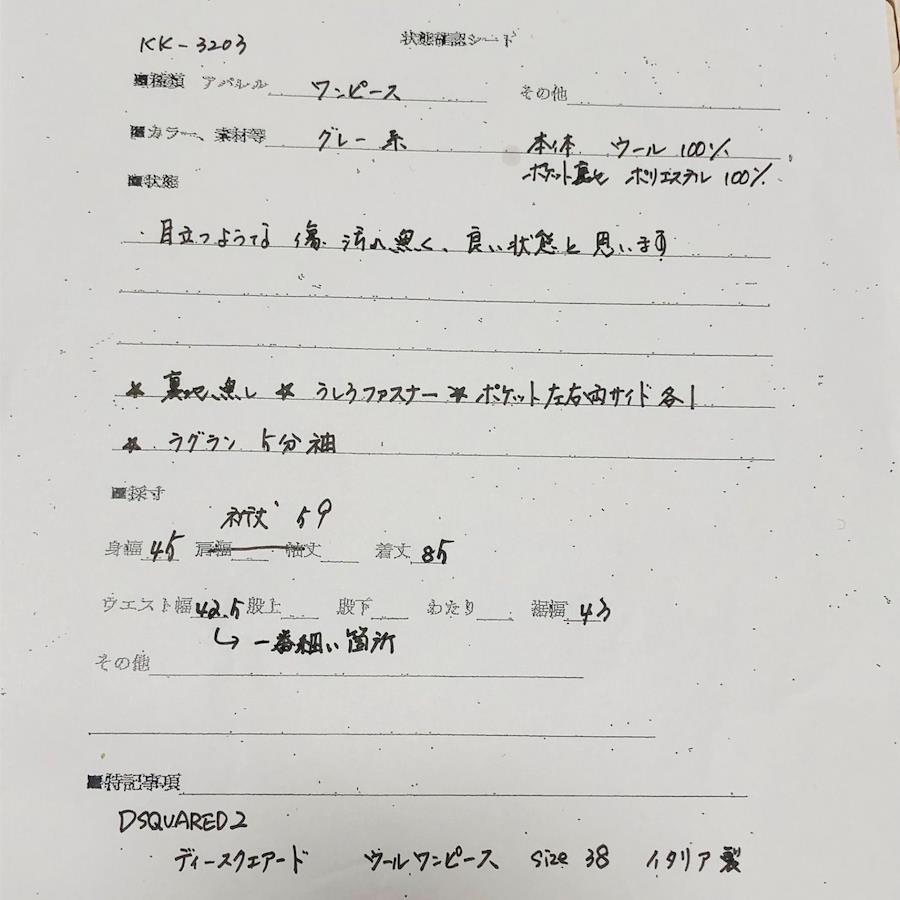 KK-3203
状態確認シート
■種類 アパレル ワンピース その他
■カラー、素材等 グレー系 本体 ウール 100%
ポケット裏地 ポリエステル 100%
■状態
・目立つような 傷・汚れ無く、良い状態と思います
* 裏地無し * うしろファスナー * ポケット左右両サイド各1
* ラグラン 5分袖
■採寸
裄丈 59
身幅 45 肩幅 袖丈 着丈 85
ウエスト幅 42.5 股上 股下 わたり 裾幅 43
↳ 一番細い箇所
その他
■特記事項
DSQUARED2
ディースクエアード ウールワンピース size 38 イタリア製